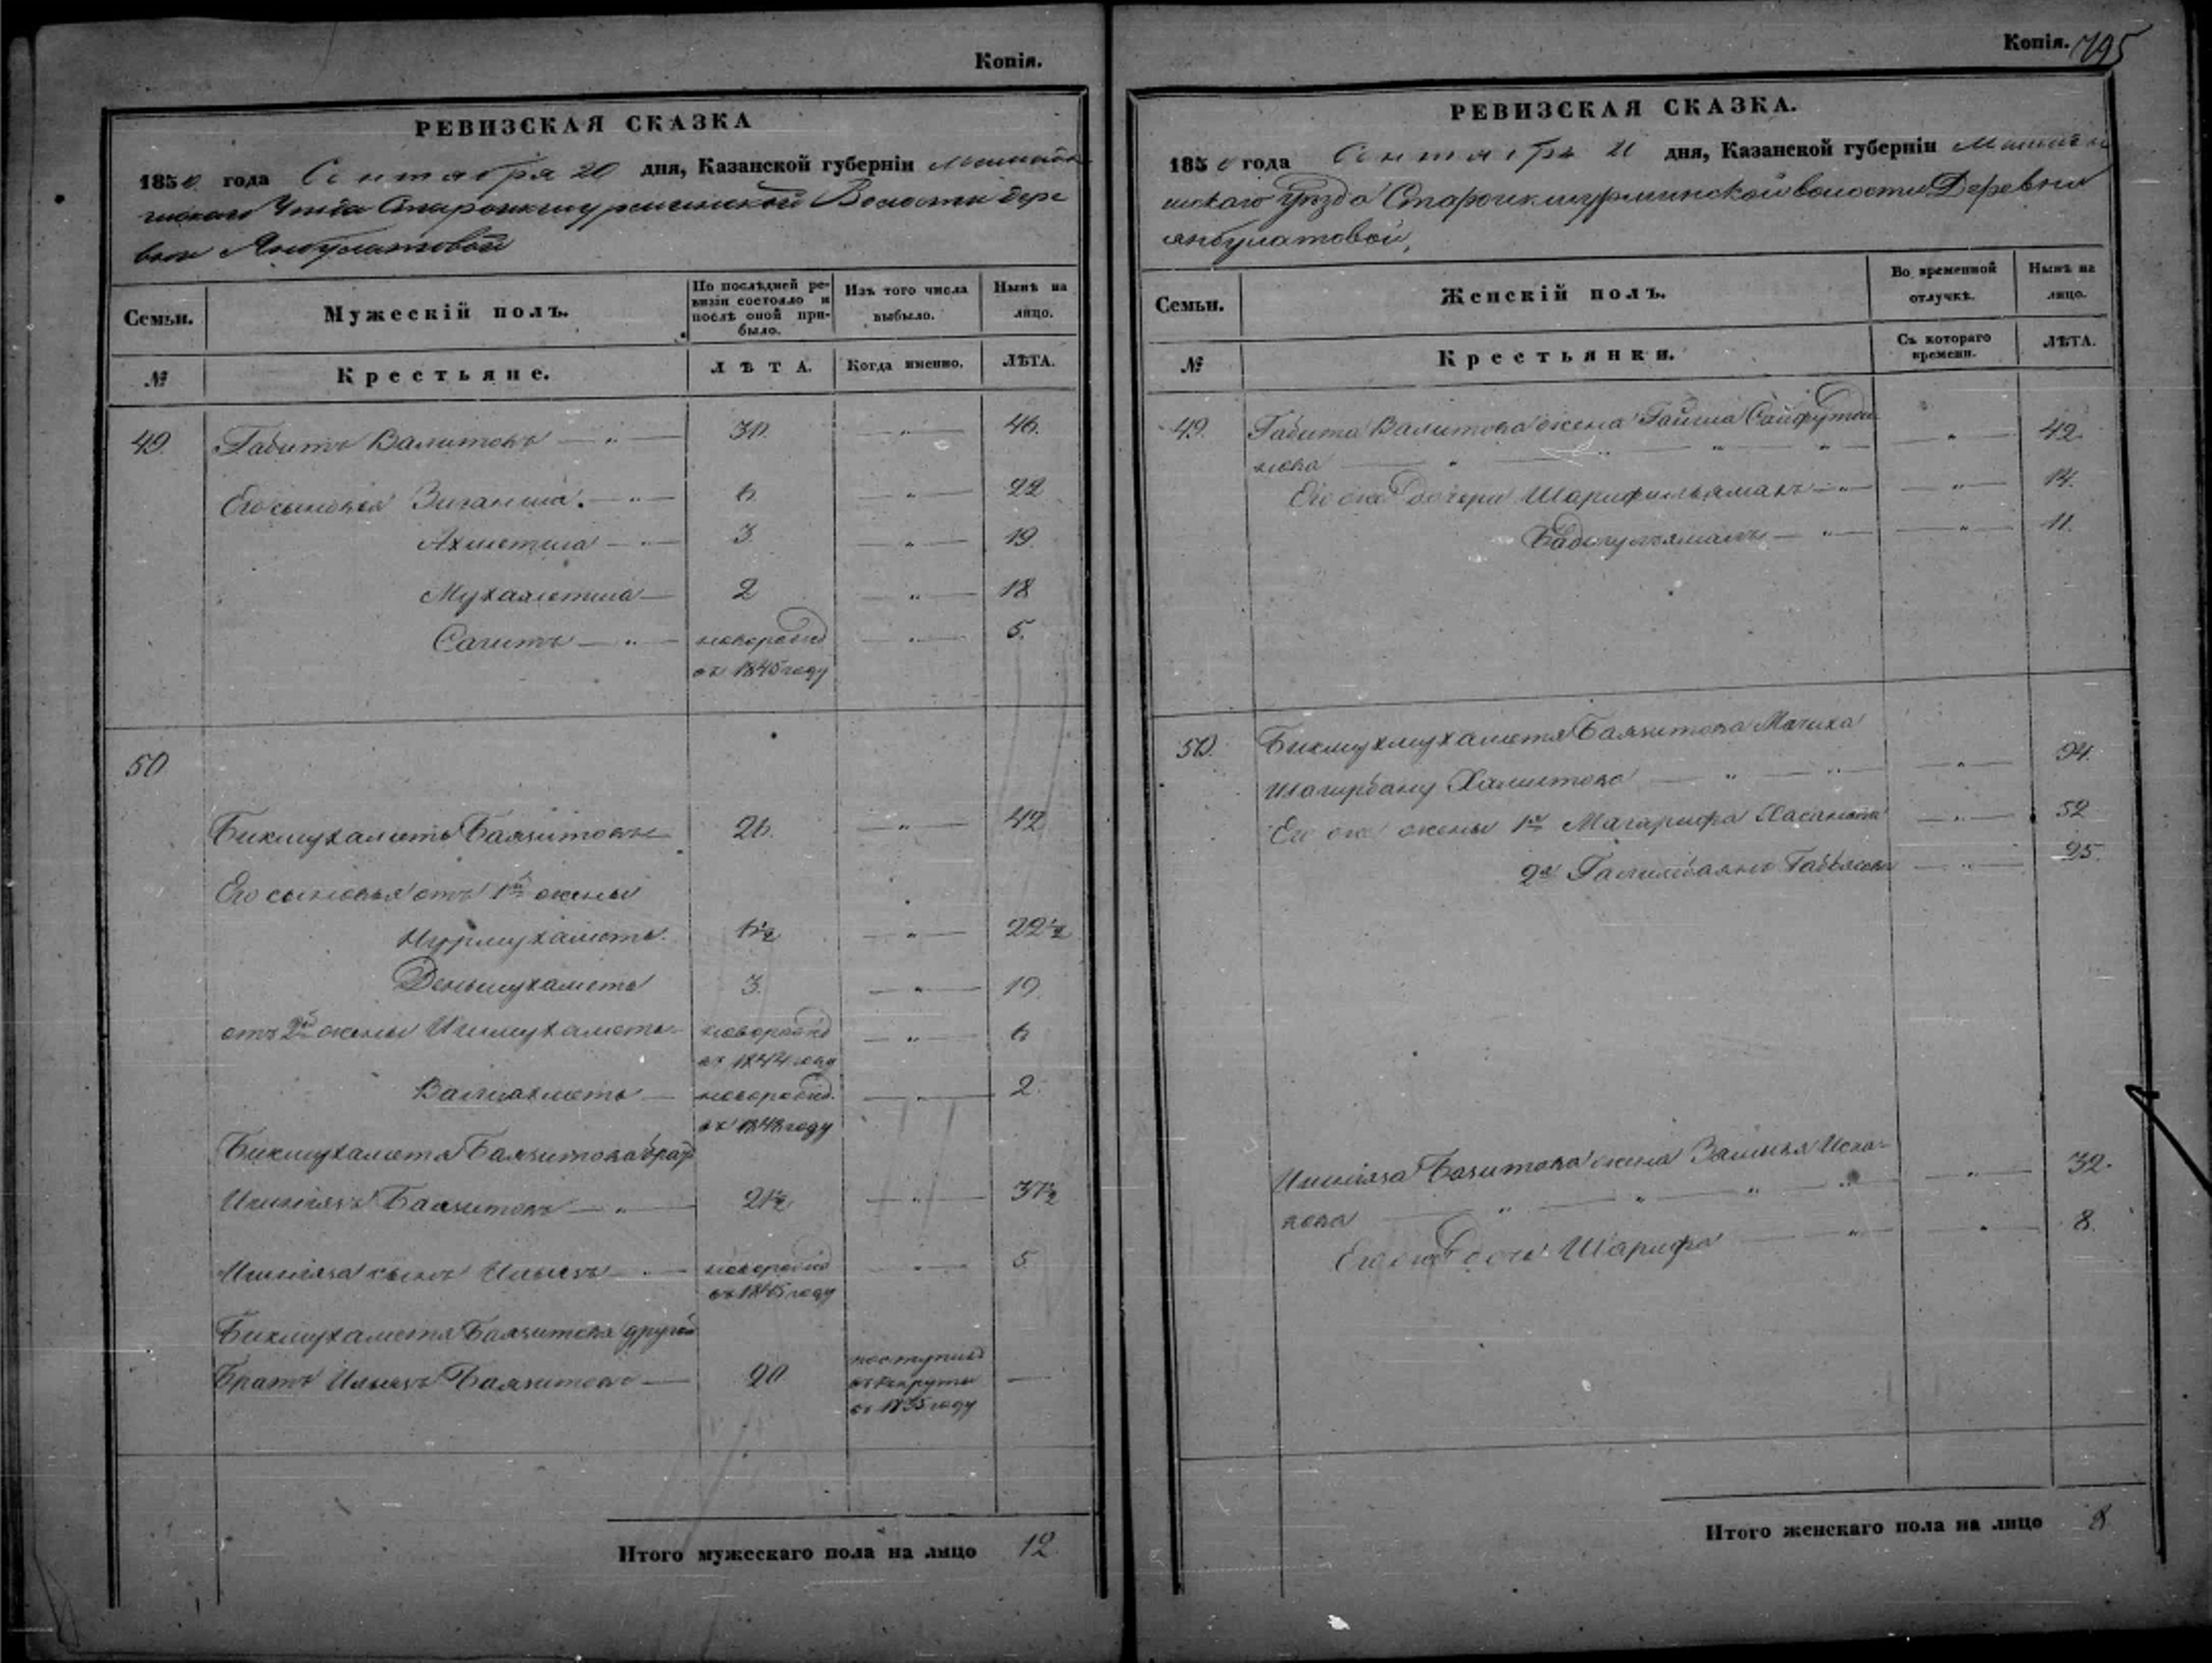 Копія.
РЕВИЗСКАЯ СКАЗКА
1850 года Сентября 20 дня, Казанской губерніи Мамады
шскаго Уезда Староикшурминской Волости дере
вни Янбулатовой
Семьи.
Мужескій полъ.
По послѣдней ре-
визіи состояло и
послѣ оной при-
было.
Изъ того числа
выбыло.
Нынѣ на
лицо.
№
Крестьяне.
ЛѢТА.
Когда именно.
ЛѢТА.
49. Габитъ Валитовъ — " — 30. — " — 46.
Его сыновья Зиганша. — " — 6 — " — 22
Ахметша — " — 3. — " — 19
Мухаметша — 2 — " — 18
Сагитъ — " — новорожд — " — 5.
въ 1845 году
50
Бикмухаметъ Баязитовъ 26. — " — 42
Его сыновья отъ 1й жены
Нурмухаметъ. 6½ — " — 22½
Деньмухаметъ 3. — " — 19.
отъ 2й жены Ишмухаметъ новорожд — " — 6
въ 1844 году
Валиахметъ — новорожд. — " — 2.
въ 1848 году
Бикмухаметя Баязитова брат
Ишніязъ Баязитовъ — " — 21½ — " — 37½
Ишніяза сынъ Ильязъ — " — новорожд — " — 5
въ 1845 году
Бикмухаметя Баязитова другой
Братъ Ильязъ Баязитовъ — 20 поступилъ —
въ рекруты
въ 1835 году
Итого мужескаго пола на лицо 12.
Копія. 795
РЕВИЗСКАЯ СКАЗКА.
1850 года Сентябрь 20 дня, Казанской губерніи Мамады
шскаго уѣзда Староикшурминской волости Деревни
янбулатовой,
Семьи.
Женскій полъ.
Во временной
отлучкѣ.
Нынѣ на
лицо.
№
Крестьянки.
Съ котораго
времени.
ЛѢТА.
49. Габита Валитова жена Гайша Сайфутди
нова — " — " — " — " — " — 42
Его же дочери Шарифильямалъ — " — " — 14.
Бадигульямалъ — " — " — 11.
50. Бикмухмухаметя Баязитова Мачиха
Шагирбану Халитова — " — " — " — 94.
Его же жены 1я Магарифа Хасанова — " — 52
2я Галимбаянъ — " — 25.
Ишніяза Баязитова жена
кова — " — " — " — " — " — 32.
Его же дочь Шарифа — " — " — 8.
Итого женскаго пола на лицо 8